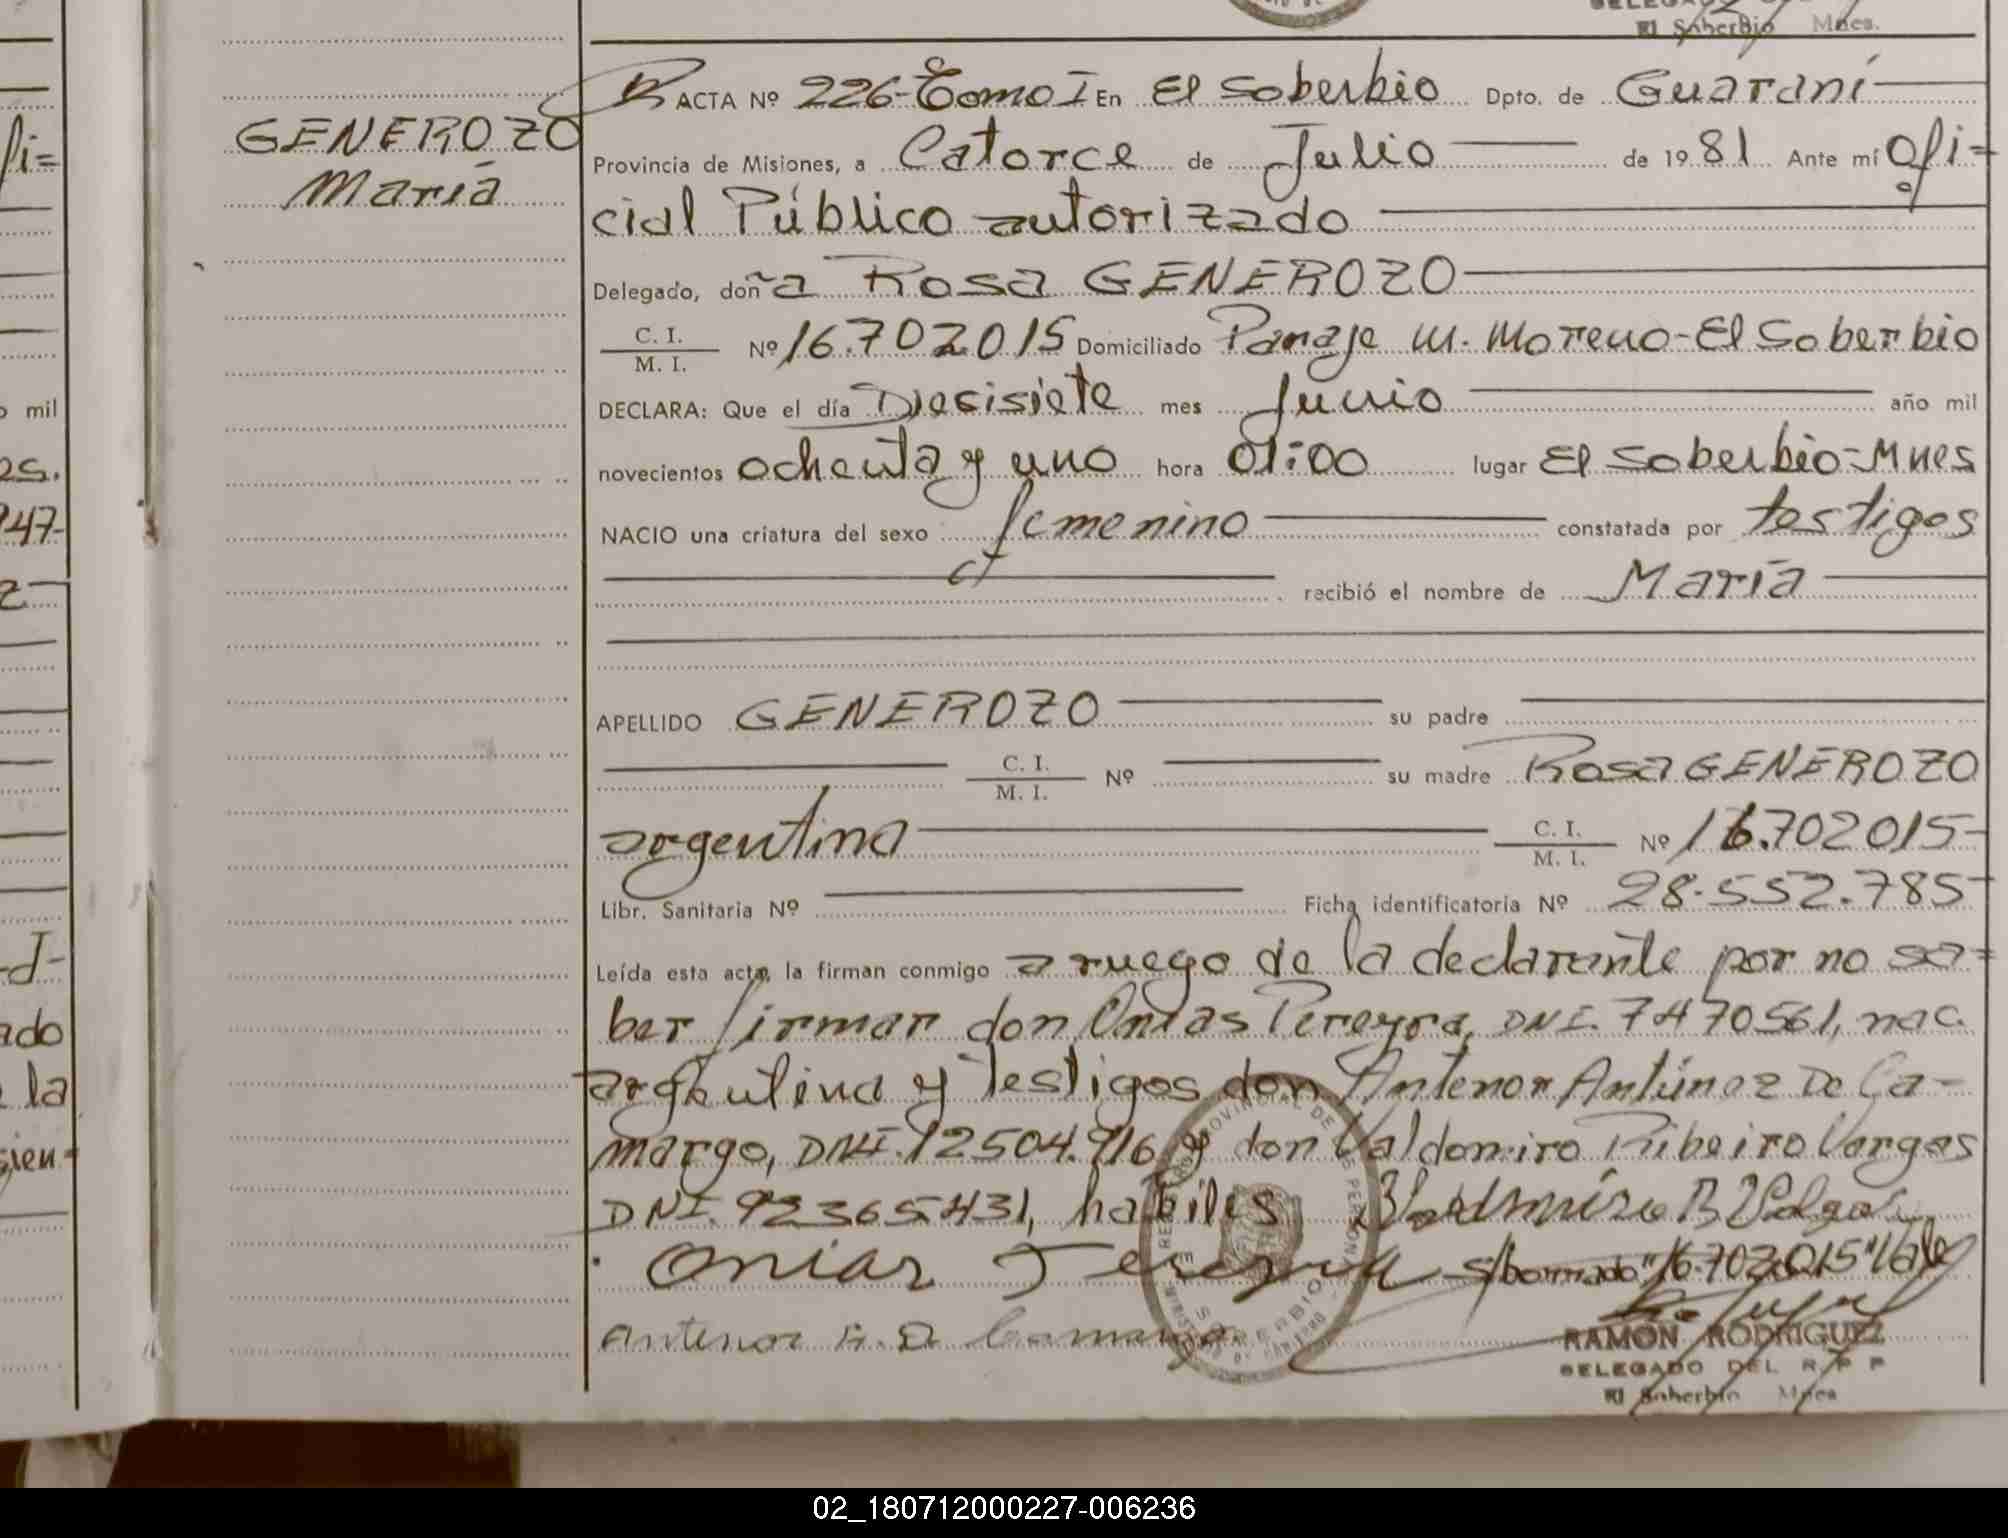 El Soberbio Mnes.
GENEROZO
Maria
ACTA Nº 226-Tomo I En El Soberbio Dpto. de Guaraní
Provincia de Misiones, a Catorce de Julio de 1981 Ante mí Ofi=
cial Público autorizado
Delegado, doña Rosa GENEROZO
C. I. / M. I. Nº 16.702.015 Domiciliado Paraje M. Moreno-El Soberbio
DECLARA: Que el día Diecisiete mes Junio año mil
novecientos ochenta y uno hora 01:00 lugar El Soberbio-Mnes
NACIO una criatura del sexo femenino constatada por testigos
recibió el nombre de Maria
APELLIDO GENEROZO su padre
C. I. / M. I. Nº su madre Rosa GENEROZO
argentina C. I. / M. I. Nº 16.702015-
Libr. Sanitaria Nº Ficha identificatoria Nº 28.552.785-
Leída esta acta, la firman conmigo a ruego de la declarante por no sa=
ber firmar don Onias Pereyra, DNI. 7470561, nac.
argentina y testigos don Antenor Antúnez De Ca-
margo, DNI. 12504.916 y don Valdomiro Ribeiro Vargas
DNI. 92365431, habiles
Onias Pereyra s/borrado "16.702.015" Vale
Antenor A. D. Camargo
RAMON RODRIGUEZ
DELEGADO DEL R. P. P
El Soberbio Mnes
02_180712000227-006236